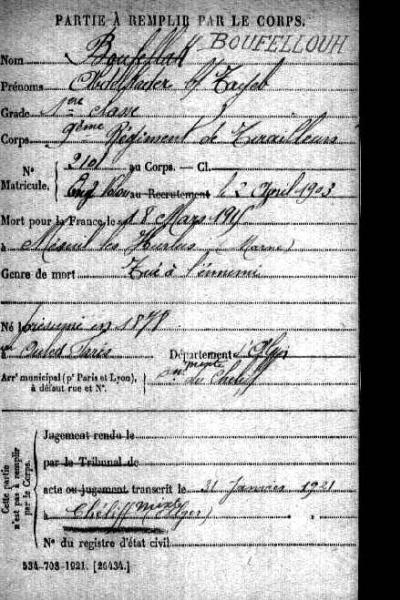 PARTIE À REMPLIR PAR LE CORPS.
BOUFELLOUH
Nom Boufellah
Prénoms Abdelkader b/ Tayeb
Grade 1ère classe
Corps 9ème Régiment de Tirailleurs
N° Matricule. 2101 au Corps. — Cl.
Eng Volon au Recrutement le 2 April 1903
Mort pour la France le 8 Mars 191
à Mesnil les Hurlus (Marne)
Genre de mort Tué à l'ennemi
Né présumé en 1878
à Ouled Farès Département d'Alger
Arrt municipal (pr Paris et Lyon), à défaut rue et N°. cne mixte du Chéliff
Cette partie n'est pas à remplir par le Corps.
Jugement rendu le
par le Tribunal de
acte ou jugement transcrit le 31 Janvier 1921
à Chéliff mixte (Alger)
N° du registre d'état civil
534-708-1921. [26434.]